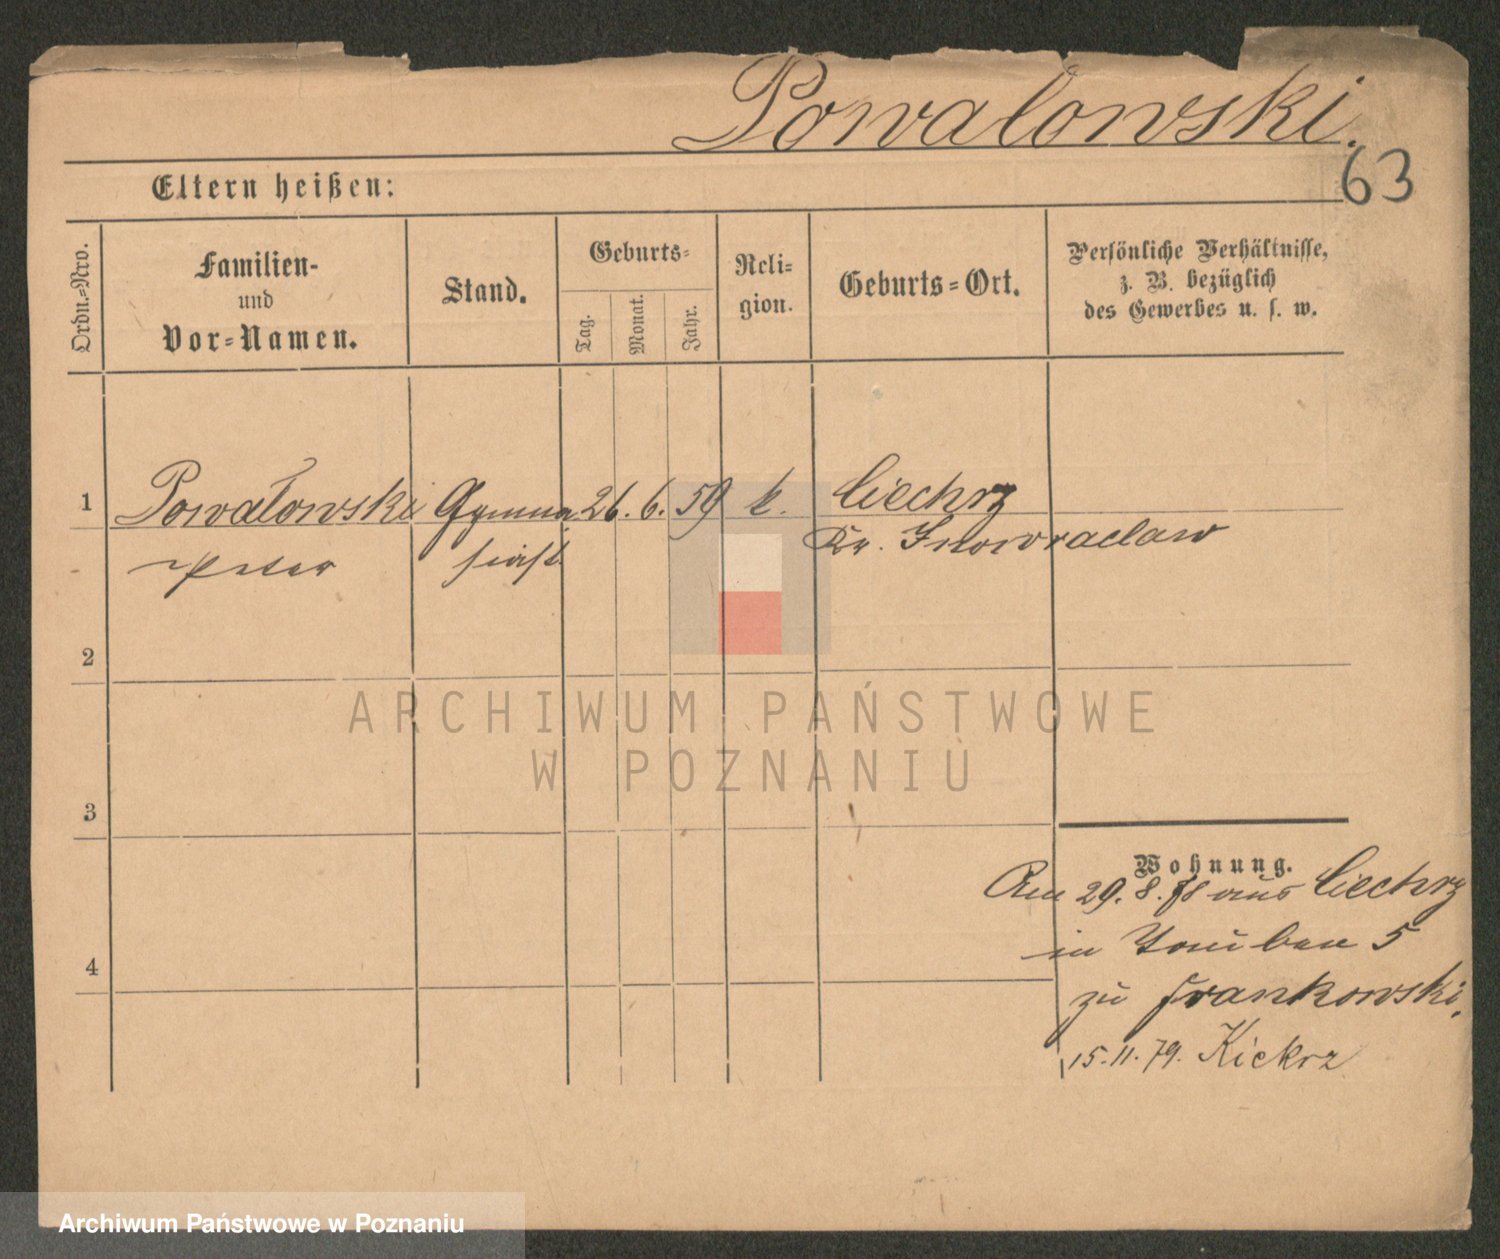 Powałowski.
63
Eltern heißen:
Ordn.-Nro.
Familien-
und
Vor-Namen.
Stand.
Geburts-
Tag.
Monat.
Jahr.
Reli-
gion.
Geburts-Ort.
Persönliche Verhältnisse,
z. B. bezüglich
des Gewerbes u. s. w.
1
Powałowski Gymna 26. 6. 59 k. Ciechrz
Peter siast Kr. Inowraclaw
2
ARCHIWUM PAŃSTWOWE
W POZNANIU
3
Wohnung.
Am 29. 8. 78 aus Ciechrz
in 5
4
zu Frankowski.
15. 11. 79. Kiekrz
Archiwum Państwowe w Poznaniu